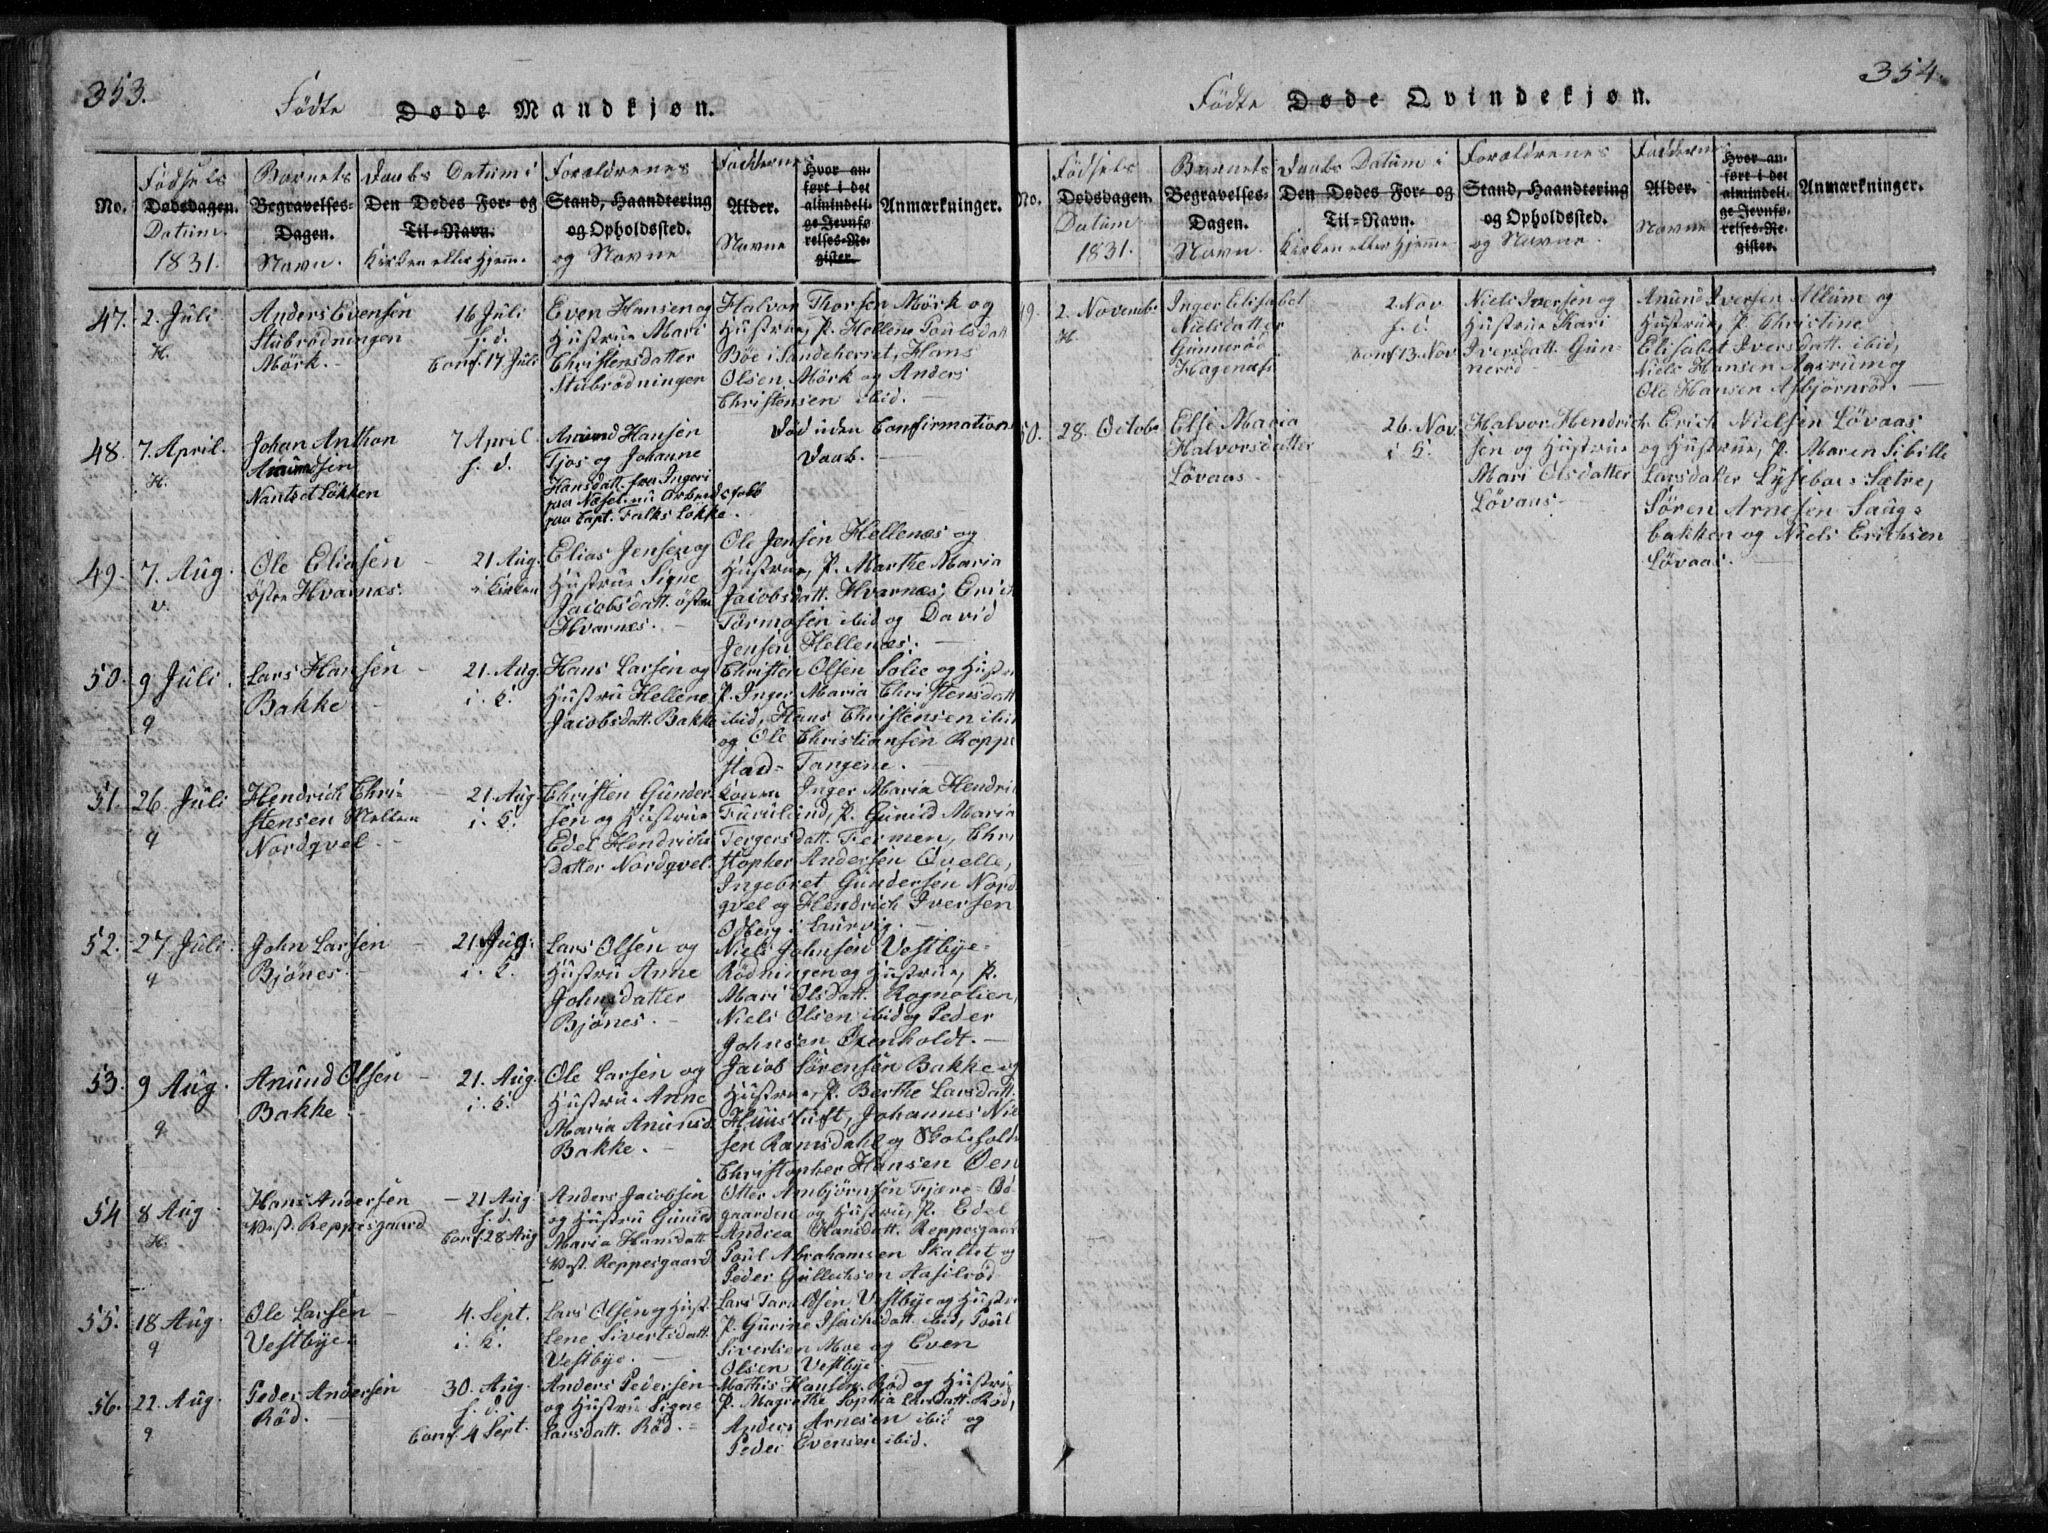 353.
Födte Døde Mandkjøn.
No.
Födsels
Dødsdagen.
Datum.
1831.
Barnets
Begravelses-
Dagen.
Navn.
Daabs Datum i
Den Dødes For- og
Til-Navn.
Kirken eller Hjemme
Forældrenes
Stand, Haandtering
og Opholdssted.
og Navne
Faddernes
Alder.
Navne
Hvor an-
ført i det
almindeli-
ge Jevnfø-
relses-Re-
gister.
Anmærkninger.
47. 2. Juli
H.
Anders Evensen
Stubrödningen
Mörk.
16 Juli
h. d.
Conf. 17 Juli
Even Hansen og
Hustrue Mari
Christensdatter
Stubrödningen
Halvor Thorsen Mörk og
Hustrue, P. Hellene Poulsdatt
Böe i Sandeherret, Hans
Olsen Mörk og Anders
Christensen ibid.
48. 7. April.
H.
Johan Anthon
Amundsen
Nantset Lökken
7 April.
h. d.
Amund Hansen
Tjos og Johanne
Hansdatt. fra Ingeri
paa Næsel. nu Arbeidsfolk
paa Capt. Falks Lökke.
Död uden Confirmation
Daab.
49. 7. Aug.
v.
Ole Eliasen
öster Hvarnæs.
21 Aug.
i Kirken
Elias Jensen og
Hustrue Signe
Jacobsdatt. öster
Hvarnes.
Ole Jensen Hellenæs og
Hustrue, P. Marthe Maria
Jacobsdatt. Hvarnæs, Erich
Tormosen ibid og David
Jensen Hellenæs.
50. 9 Juli.
q
Lars Hansen
Bakke
21. Aug.
i. K.
Hans Larsen og
Hustru Hellene
Jacobsdatt. Bakke
Christen Olsen Solie og Hustru
P. Inger Maria Christensdatt
ibid, Hans Christensen ibid
og Ole Christiansen Roppe
stad-Tangene.
51. 26. Juli
q
Hendrich Chri-
stensen Mellem
Nordqvel.
21. Aug
i. K.
Christen Gunder-
sen og Hustrue
Edel Hendrichs
datter Nordqvel.
Konen Inger Maria Hendri
Furulund, P. Gunild Maria
Tergersdatt. Fermen, Chri
stopher Andersen Qvelle,
Ingebret Gundersen Nord
qvel og Hendrich Iversen
Odberg i Laurvig.
52. 27. Juli.
q
John Larsen
Bjönes.
21. Aug.
i. K.
Lars Olsen og
Hustru Anne
Johnsdatter
Bjönes.
Niels Johnsen Vestbye-
Rödningen og Hustrue, P.
Mari Olsdatt. Rognolien,
Niels Olsen ibid og Peder
Johnsen Oxenholdt.
53. 9 Aug.
q.
Anund Olsen
Bakke
21. Aug.
i. K.
Ole Larsen og
Hustrue Anne
Maria Anunds.
Bakke.
Jacob Sörensen Bakke og
Hustrue, P. Berthe Larsdatt.
Huustuft, Johannes Niel
sen Ramsdahl og Skolehold
Christopher Hansen Öen
54 8 Aug.
H.
Hans Andersen
Vest. Reppesgaard
21 Aug.
h. d.
Conf. 28 Aug
Anders Jacobsen
og Hustru Gunild
Maria Hansdatt.
Vest. Reppesgaard
Otter Ambjörnsen Fjære-Öd-
gaarden og Hustru, P. Edel
Andrea Hansdatt. Reppesgaar
Poul Abrahamsen Skaltet og
Peder Gullichsen Aasilröd
55. 18 Aug.
q
Ole Larsen
Vestbye
4. Sept.
i. K.
Lars Olsen og Hust.
Lene Sivertsdatt.
Vestbye.
Lars Taraldsen Vestbye og Hustru
P. Gurine Isachsdatt. ibid, Poul
Sivertsen Moe og Even
Olsen Vestbye
56. 22. Aug.
q.
Peder Andersen
Röd.
30. Aug.
h. d.
Conf. 4 Sept.
Anders Pedersen
og Hustrue Signe
Larsdatt. Röd.
Mathis Hansen Röd og Hustru
P. Magrethe Sophia Larsdatt. Röd,
Anders Arnesen ibid og
Peder Evensen ibid.
354.
Födte Døde Qvindekjøn.
No.
Födsels
Dødsdagen.
Datum
1831.
Barnets
Begravelses-
Dagen.
Navn.
Daabs Datum i
Den Dødes For- og
Til-Navn.
Kirken eller Hjemme
Forældrenes
Stand, Haandtering
og Opholdssted.
og Navne.
Faddernes
Alder.
Navne
Hvor an-
ført i det
almindeli-
ge Jevnfø-
relses-Re-
gister.
Anmærkninger.
49. 2. Novembr
H.
Inger Elisabet
Nielsdatter
Gunneröd
Hagenæs.
2. Nov
h. d.
Conf 13. Nov.
Niels Iversen og
Hustrue Kari
Iversdatt. Gun-
neröd
Anund Iversen Allum og
Hustrue, P. Christine
Elisabet Iversdatt. ibid,
Niels Hansen Aasrum og
Ole Hansen Asbjörnröd.
50. 28. Octobr
Else Maria
Halvorsdatter
Lövaas
26. Nov.
i K.
Halvor Hendrich
sen og Hustrue
Mari Olsdatter
Lövaas
Erich Nielsen Lövaas
og Hustrue, P. Maren Sibille
Larsdatter Lysebo-Sætre,
Sören Arnesen Saug-
bakken og Niels Erichsen
Lövaas.